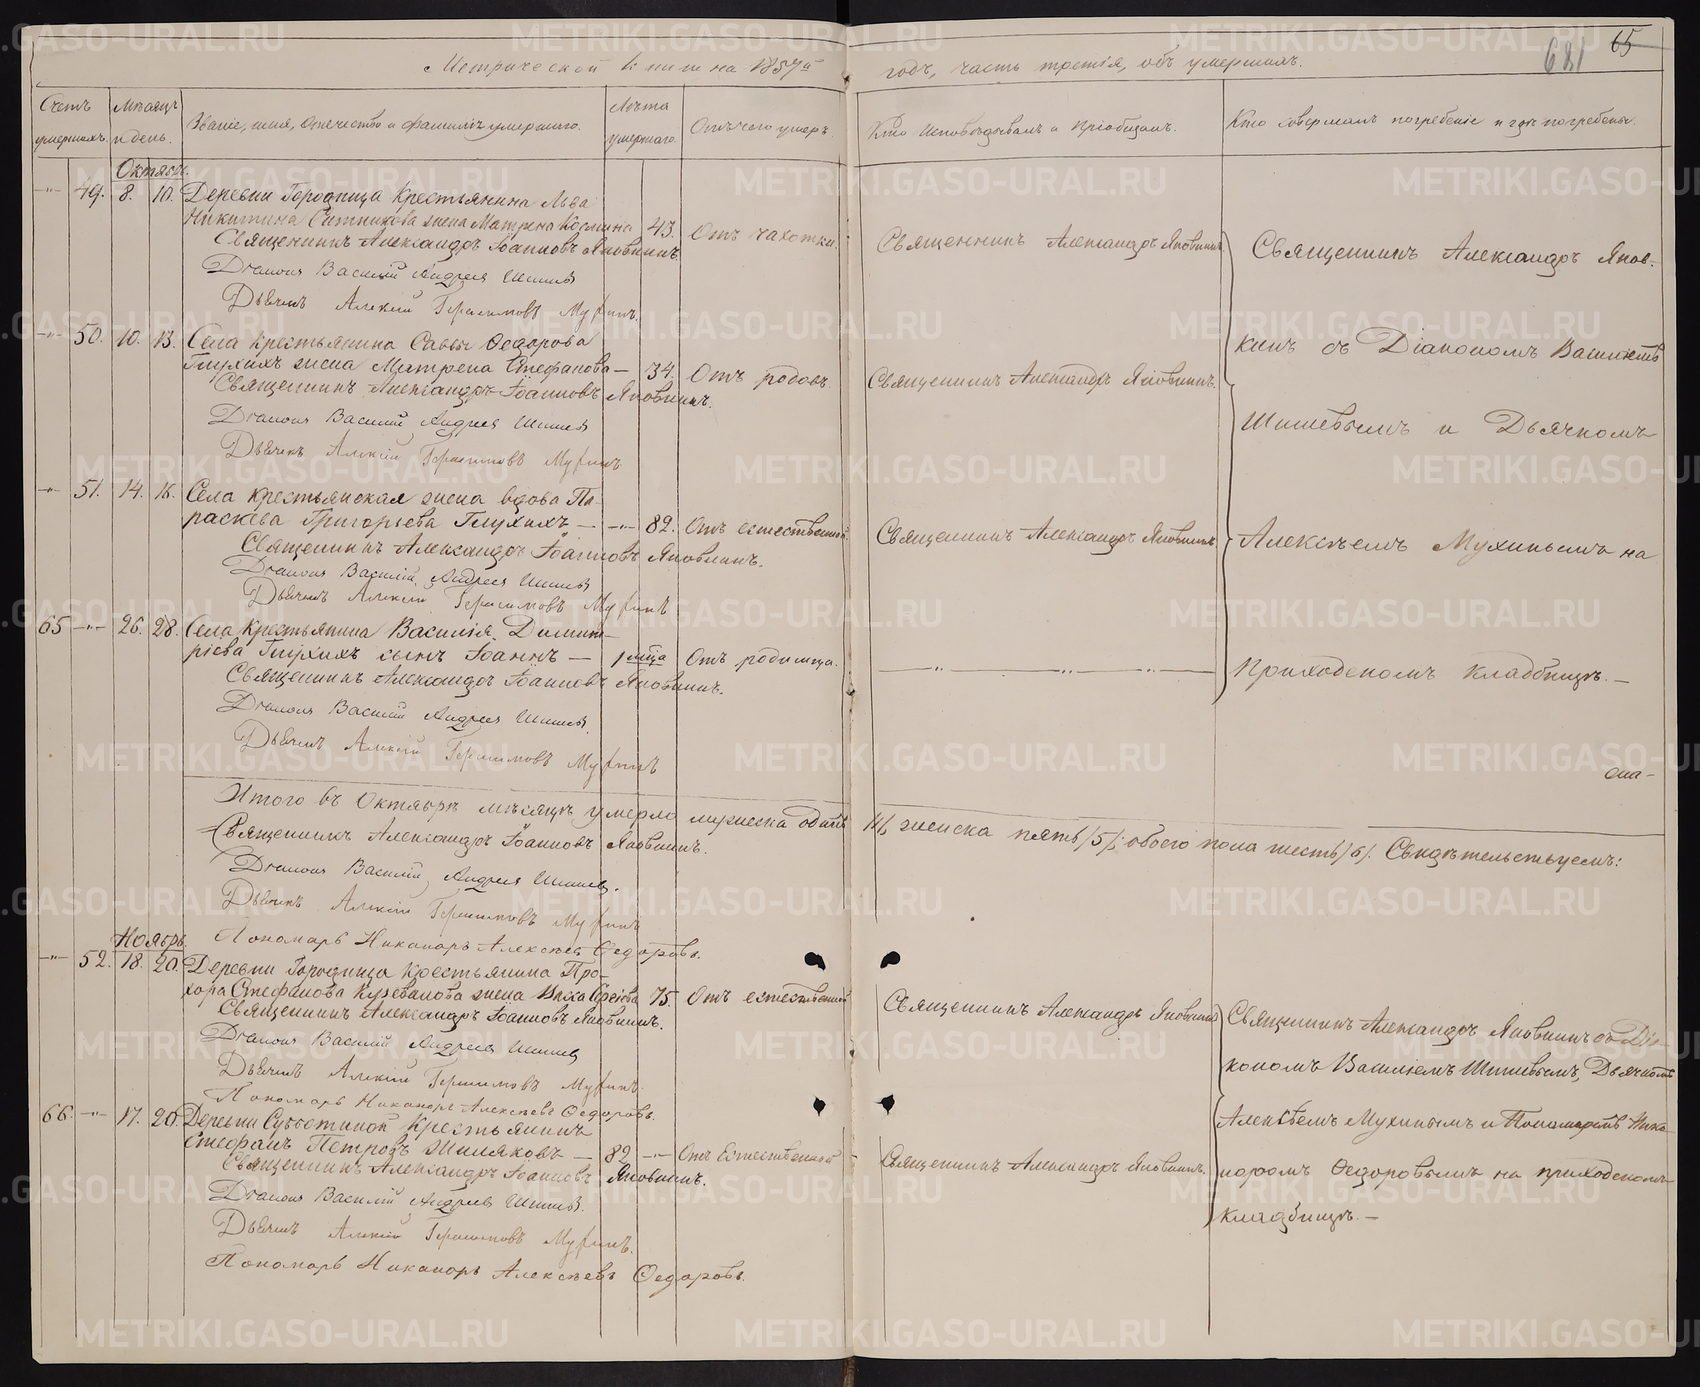 Метрической книги на 1857й
годъ, часть третія, объ умершихъ.
681 65
Счетъ умершихъ.
Мѣсяцъ и день.
Званіе, имя, отечество и фамилія умершаго.
Лѣта умершаго.
Отъ чего умеръ.
Кто исповѣдывалъ и пріобщалъ.
Кто совершалъ погребеніе и гдѣ погребены.
Октябрь.
—"— 49. 8. 10. Деревни Городища Крестьянина Льва
Никитина Ситникова жена Матрена Космина 43. Отъ чахотки. Священникъ Александръ Яковкинъ
Священникъ Александръ Іоанновъ Яковкинъ
Діаконъ Василій Андреевъ Шишевъ
Дьячекъ Алексій Герасимовъ Мухинъ.
—"— 50. 10. 13. Села крестьянина Саввы Ѳедорова
Глухихъ жена Матрена Стефанова — 34. Отъ родовъ. Священникъ Александръ Яковкинъ.
Священникъ Александръ Іоанновъ Яковкинъ.
Діаконъ Василій Андреевъ Шишевъ
Дьячекъ Алексій Герасимовъ Мухинъ
—"— 51. 14. 16. Села крестьянская жена вдова Па-
раскева Григорьева Глухихъ — —"— 82. Отъ естественной Священникъ Александръ Яковкинъ
Священникъ Александръ Іоанновъ Яковкинъ.
Діаконъ Василій Андреевъ Шишевъ
Дьячекъ Алексій Герасимовъ Мухинъ
65 —"— 26. 28. Села Крестьянина Василія Димит-
ріева Глухихъ сынъ Іоаннъ — 1 мѣца Отъ родимца. —"— —"— —"—
Священникъ Александръ Іоанновъ Яковкинъ.
Діаконъ Василій Андреевъ Шишевъ
Дьячекъ Алексій Герасимовъ Мухинъ
Священникъ Александръ Яков-
кинъ съ Діакономъ Василіемъ
Шишевымъ и Дьячкомъ
Алексѣемъ Мухинымъ на
Приходскомъ кладбищѣ. —
Итого въ Октябрѣ мѣсяцѣ умерло мужеска одинъ /1/, женска пять /5/; обоего пола шесть /6/. Свидѣтельствуемъ:
Священникъ Александръ Іоанновъ Яковкинъ.
Діаконъ Василій Андреевъ Шишевъ.
Дьячекъ Алексій Герасимовъ Мухинъ
Пономарь Никаноръ Алексѣевъ Ѳедоровъ.
Ноябрь.
—"— 52. 18. 20. Деревни Городища Крестьянина Про-
хора Стефанова Кузевалова жена 75. Отъ естественной Священникъ Александръ Яковкинъ
Священникъ Александръ Іоанновъ Яковкинъ.
Діаконъ Василій Андреевъ Шишевъ
Дьячекъ Алексій Герасимовъ Мухинъ.
Пономарь Никаноръ Алексѣевъ Ѳедоровъ.
66. —"— 17. 20. Деревни Субботиной Крестьянинъ
Стефанъ Петровъ Шиляковъ — 82 —"— Отъ Естественной Священникъ Александръ Яковкинъ.
Священникъ Александръ Іоанновъ Яковкинъ.
Діаконъ Василій Андреевъ Шишевъ.
Дьячекъ Алексій Герасимовъ Мухинъ.
Пономарь Никаноръ Алексѣевъ Ѳедоровъ.
Священникъ Александръ Яковкинъ съ Діа-
кономъ Василіемъ Шишевымъ, Дьячкомъ
Алексѣемъ Мухинымъ и Пономаремъ Ника-
норомъ Ѳедоровымъ на приходскомъ
кладбищѣ. —
METRIKI.GASO-URAL.RU